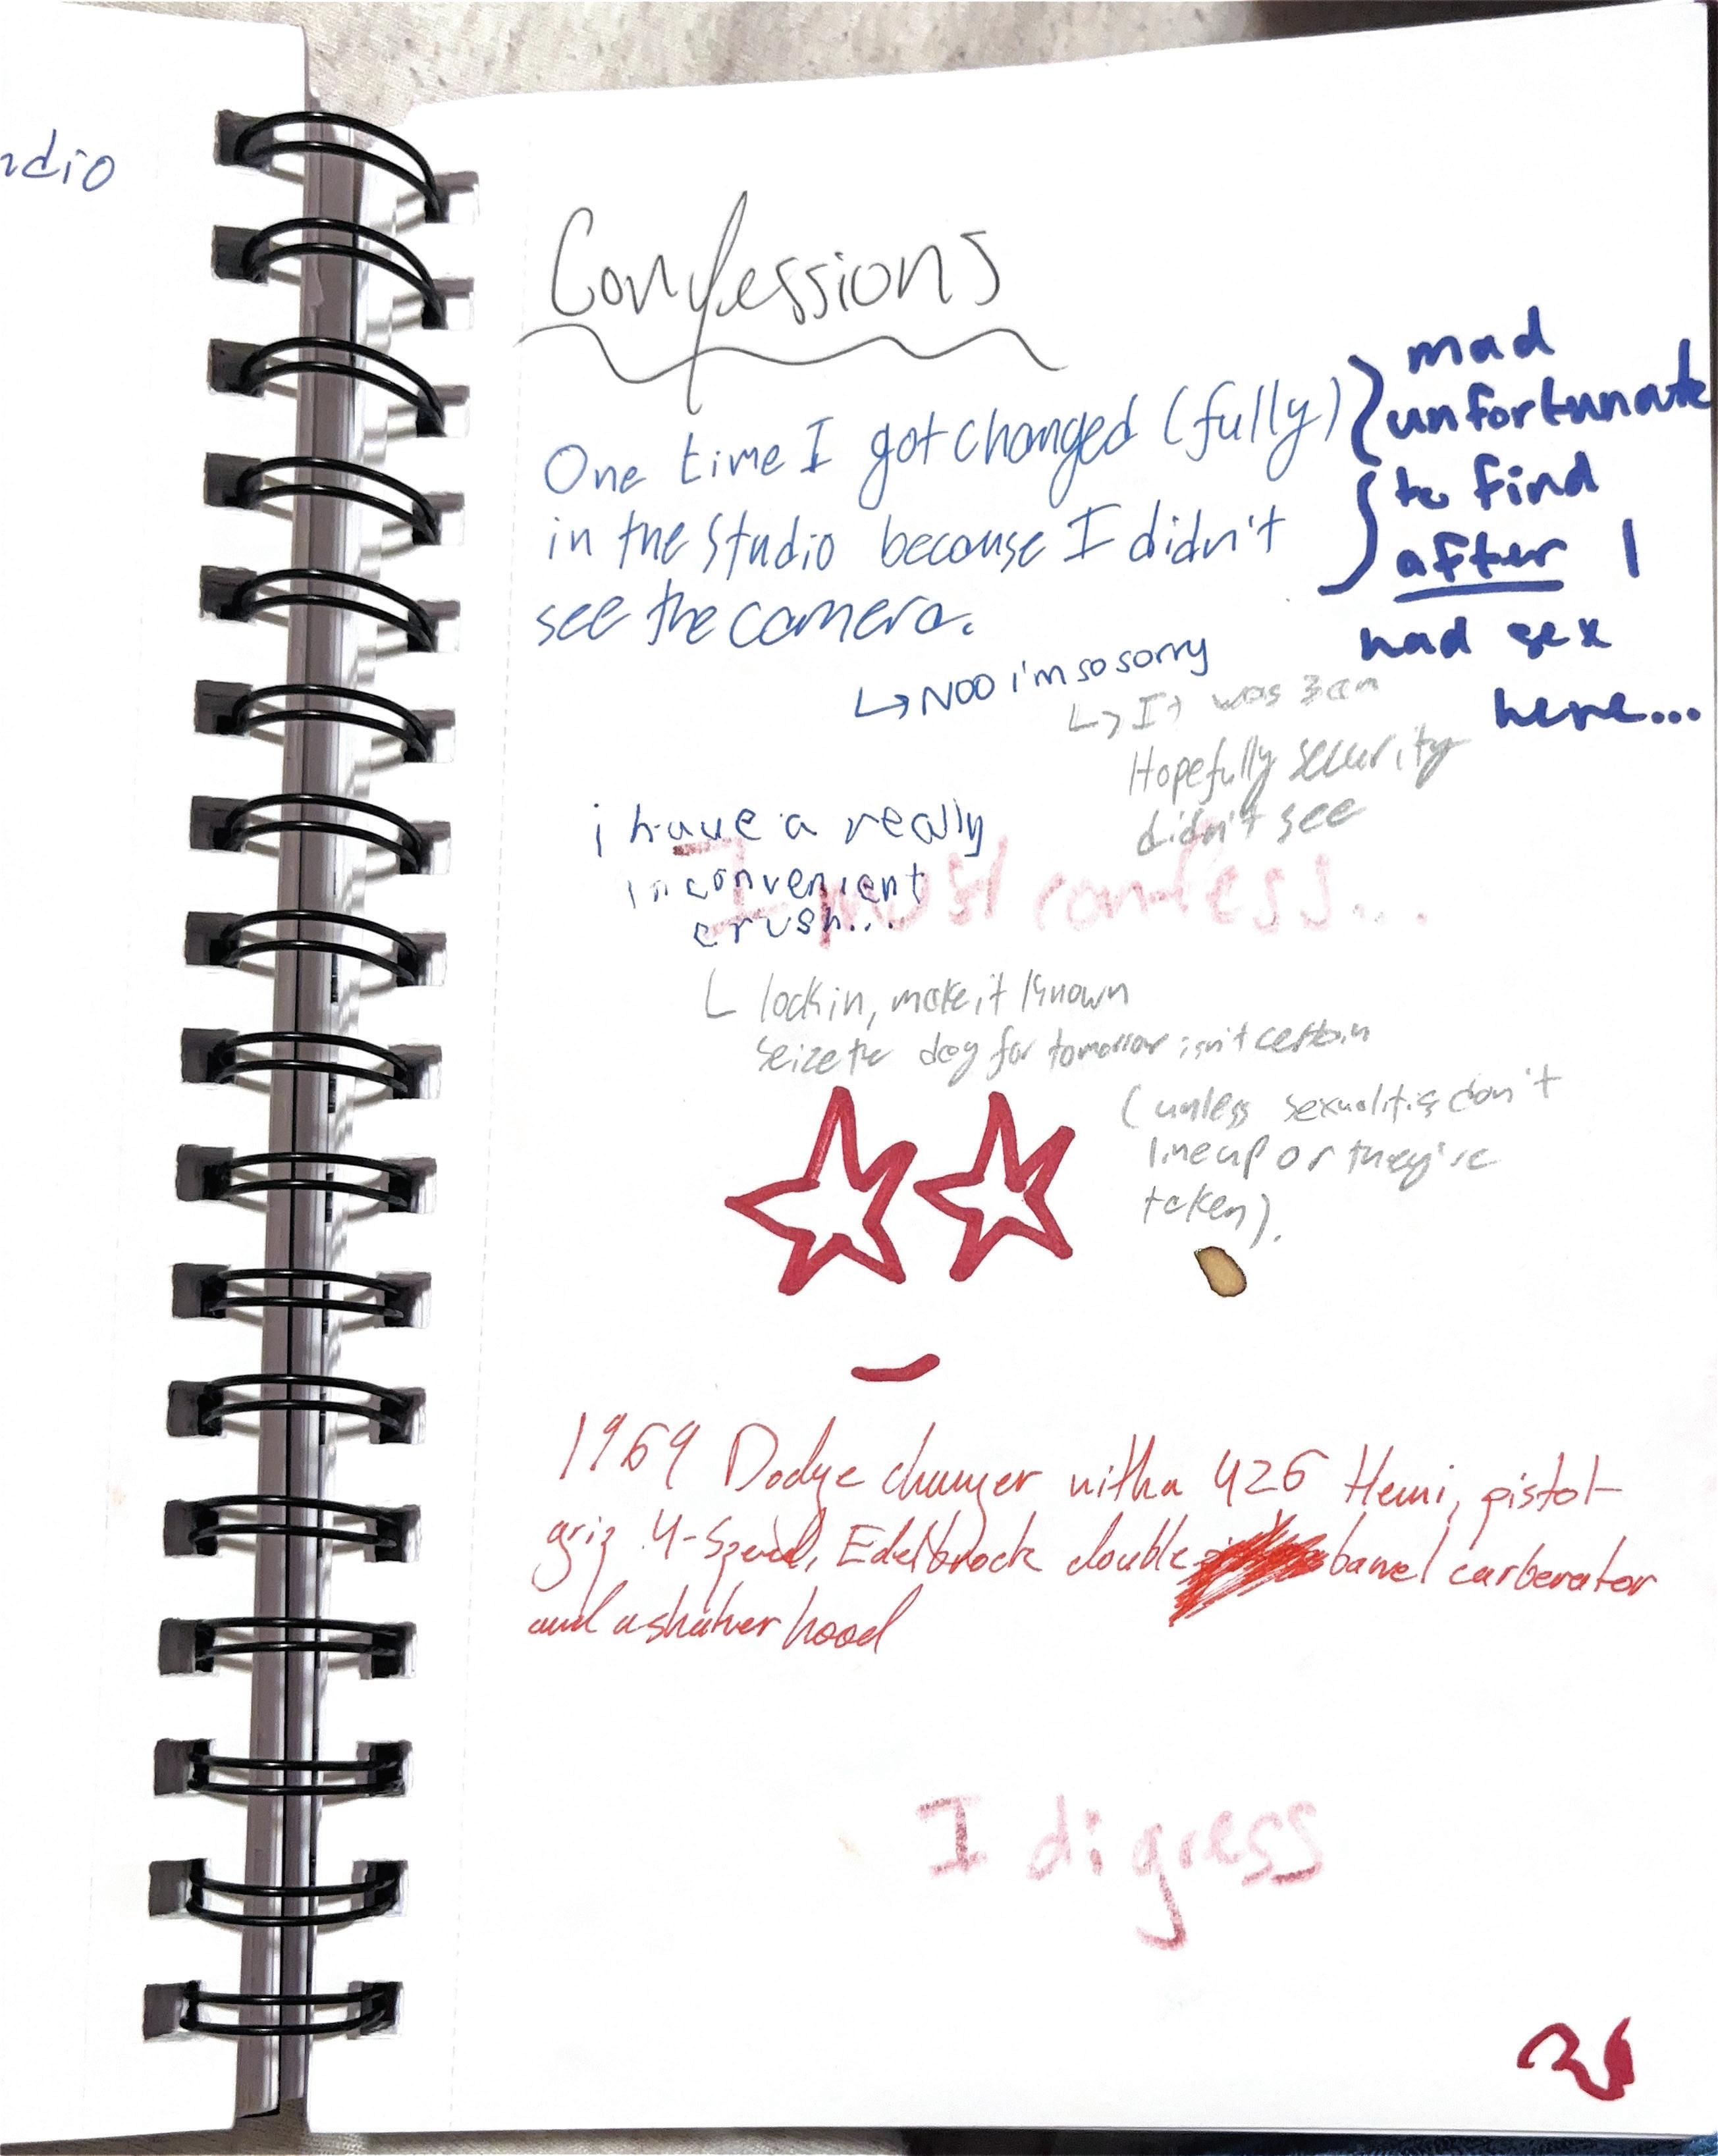 udio
Confessions
One time I got changed (fully)
in the studio because I didn't
see the camera.
mad
unfortunate
to find
after I
had sex
here...
↳ NOO i'm so sorry
↳ It was 3am
Hopefully security
didn't see
i have a really
inconvenient
crush...
I must confess...
lock in, make it known
seize the day for tomorrow isn't certain
(unless sexualities don't
line up or they're
taken).
1969 Dodge charger with a 426 Hemi, pistol-
grip 4-speed, Edelbrock double barrel carberator
and a shaker hood
I digress